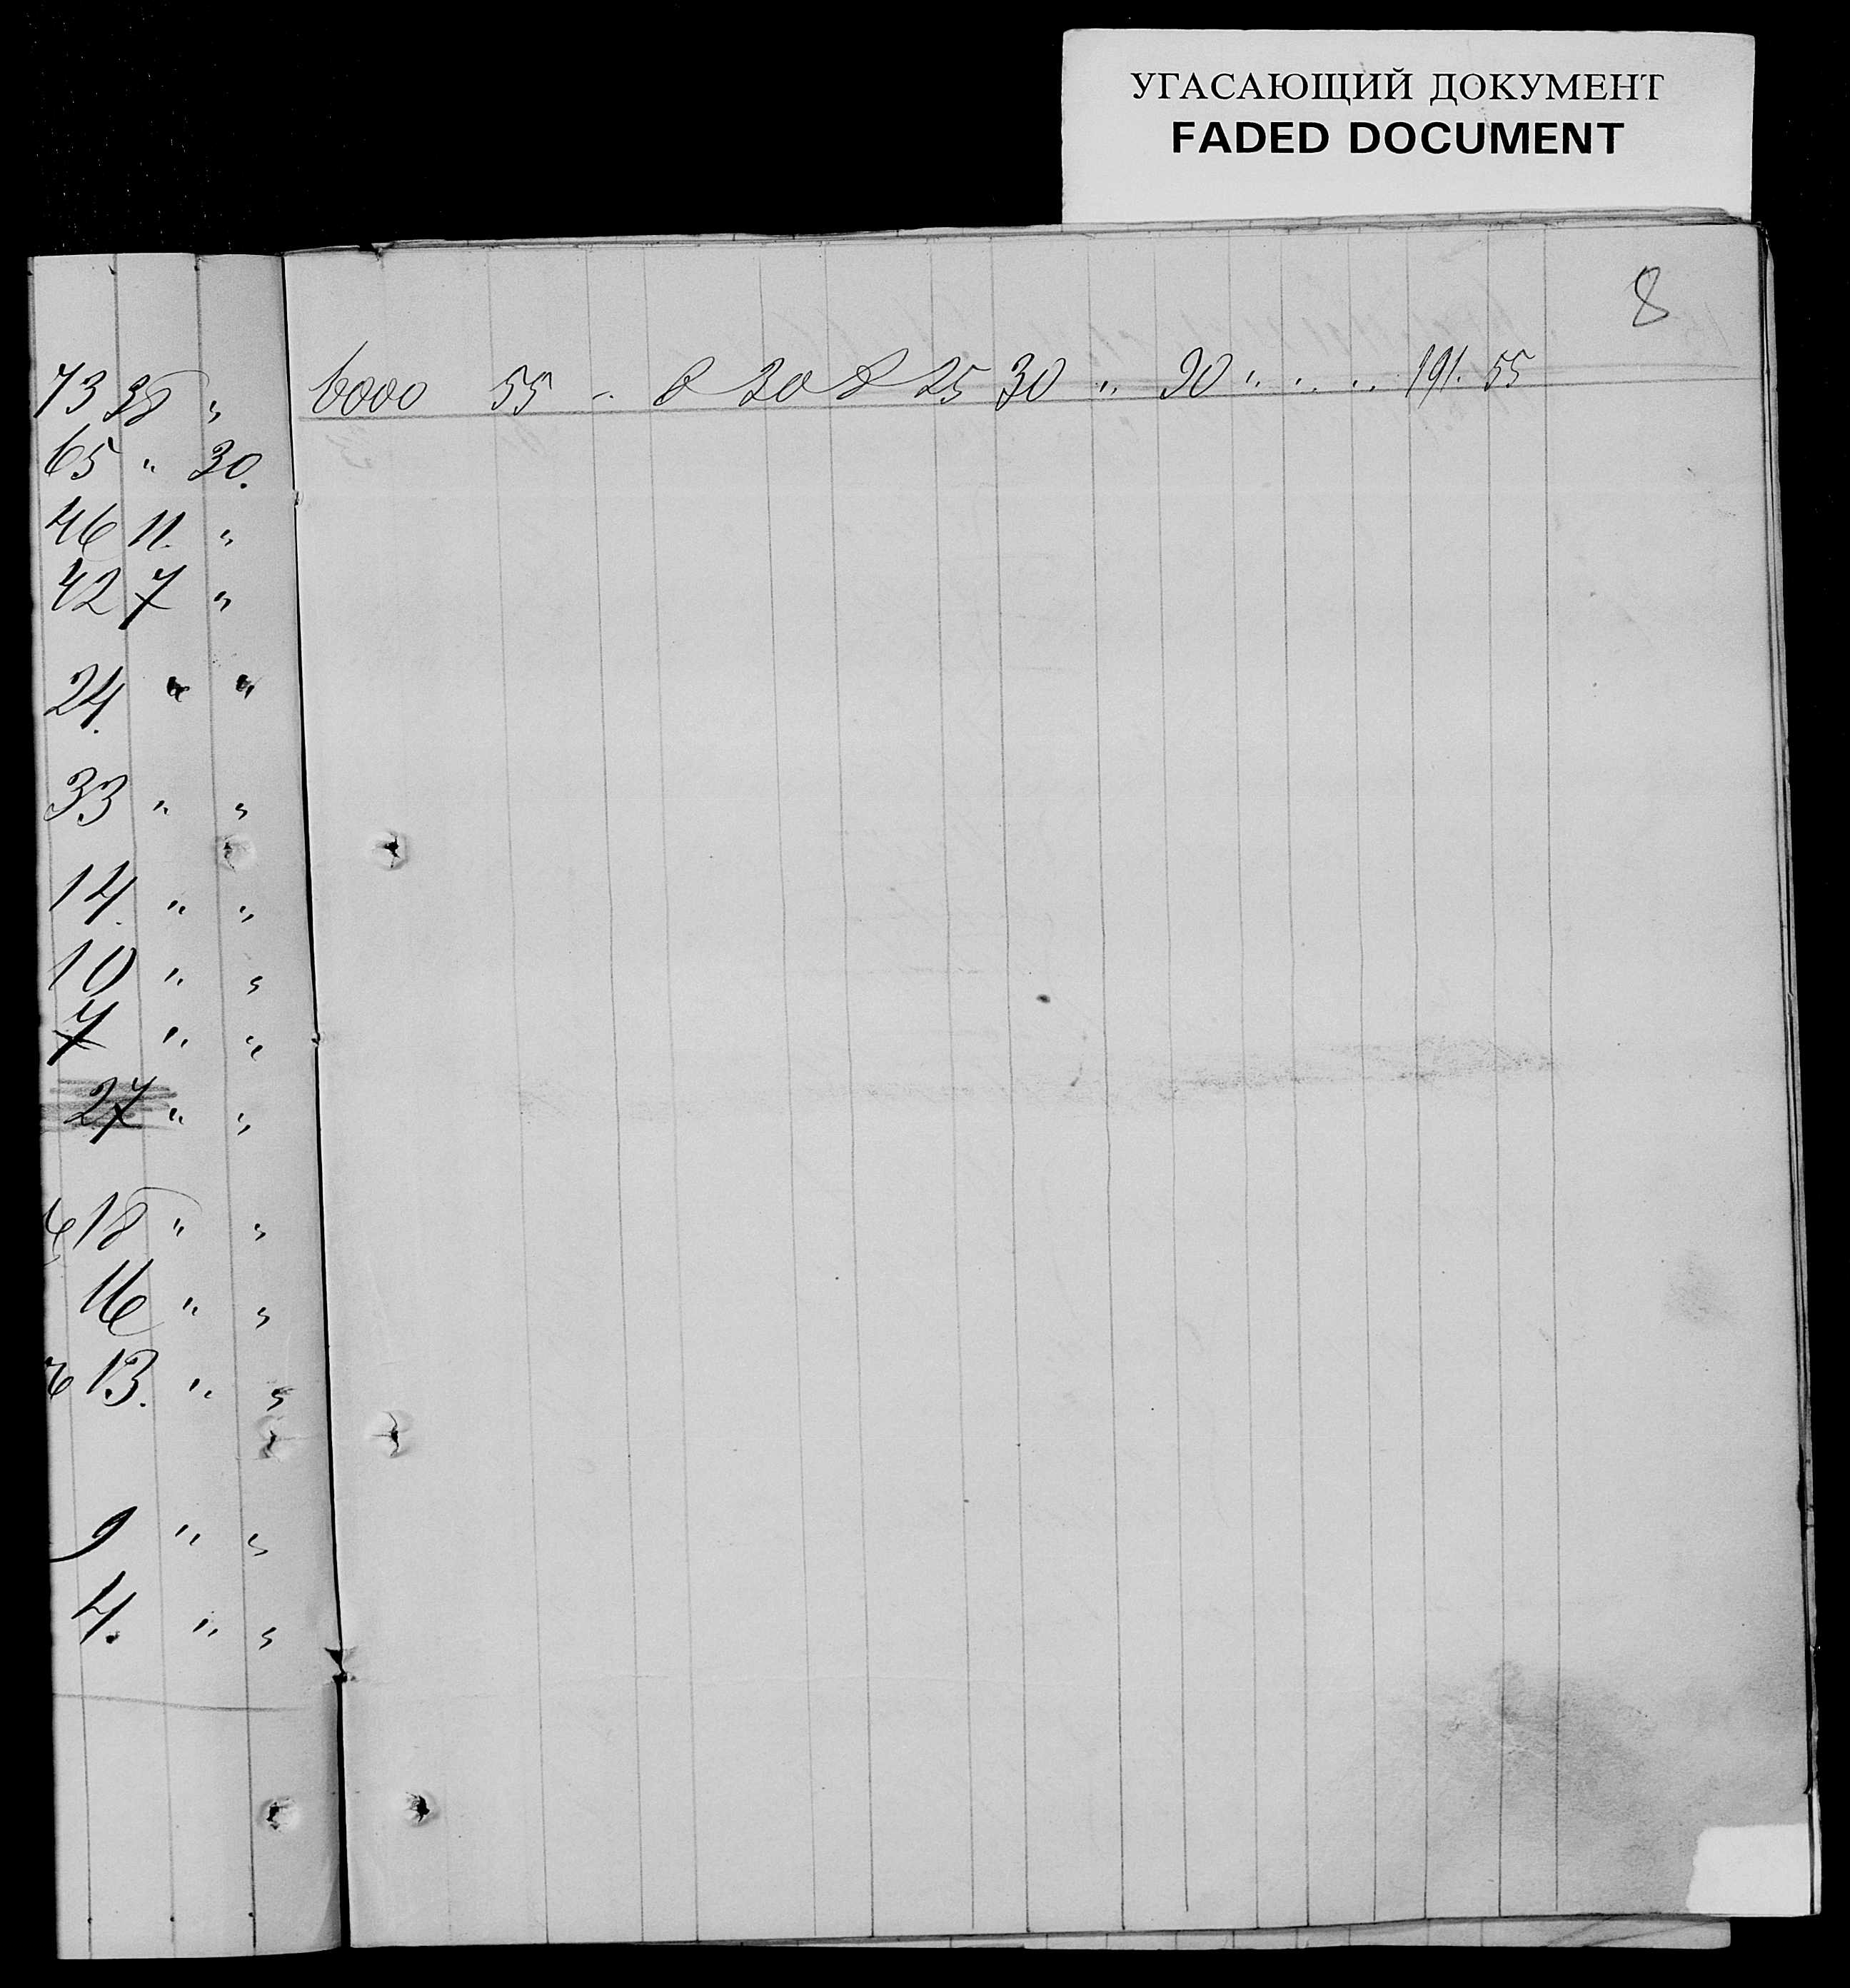 УГАСАЮЩИЙ ДОКУМЕНТ
FADED DOCUMENT
8
73 38 "
65 " 30.
46 11. "
42 7 "
24. " "
33 " "
14. " "
10 " "
7 " "
27 " "
18 " "
16 " "
13. " "
9 " "
4. " "
6000 55 " 8 20 8 25 30 " 90 " " " 191. 55